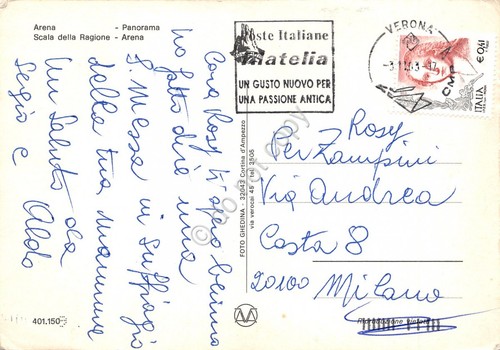 Arena - Panorama
Scala della Ragione - Arena
Poste Italiane
filatelia
UN GUSTO NUOVO PER
UNA PASSIONE ANTICA
VERONA
CMP
€0,41
ITALIA
Cara Rosy ti spero bene
ho fatto dire una
S. Messa in suffragio
della tua mamma
Un Saluto da
Sergio e Aldo
FOTO GHEDINA - 32043 Cortina d'Ampezzo
via verocai 45 - tel. 3505
Rosy
Per Zampini
Via Andrea
Costa 8
20100 Milano
Riproduzione vietata
401.150